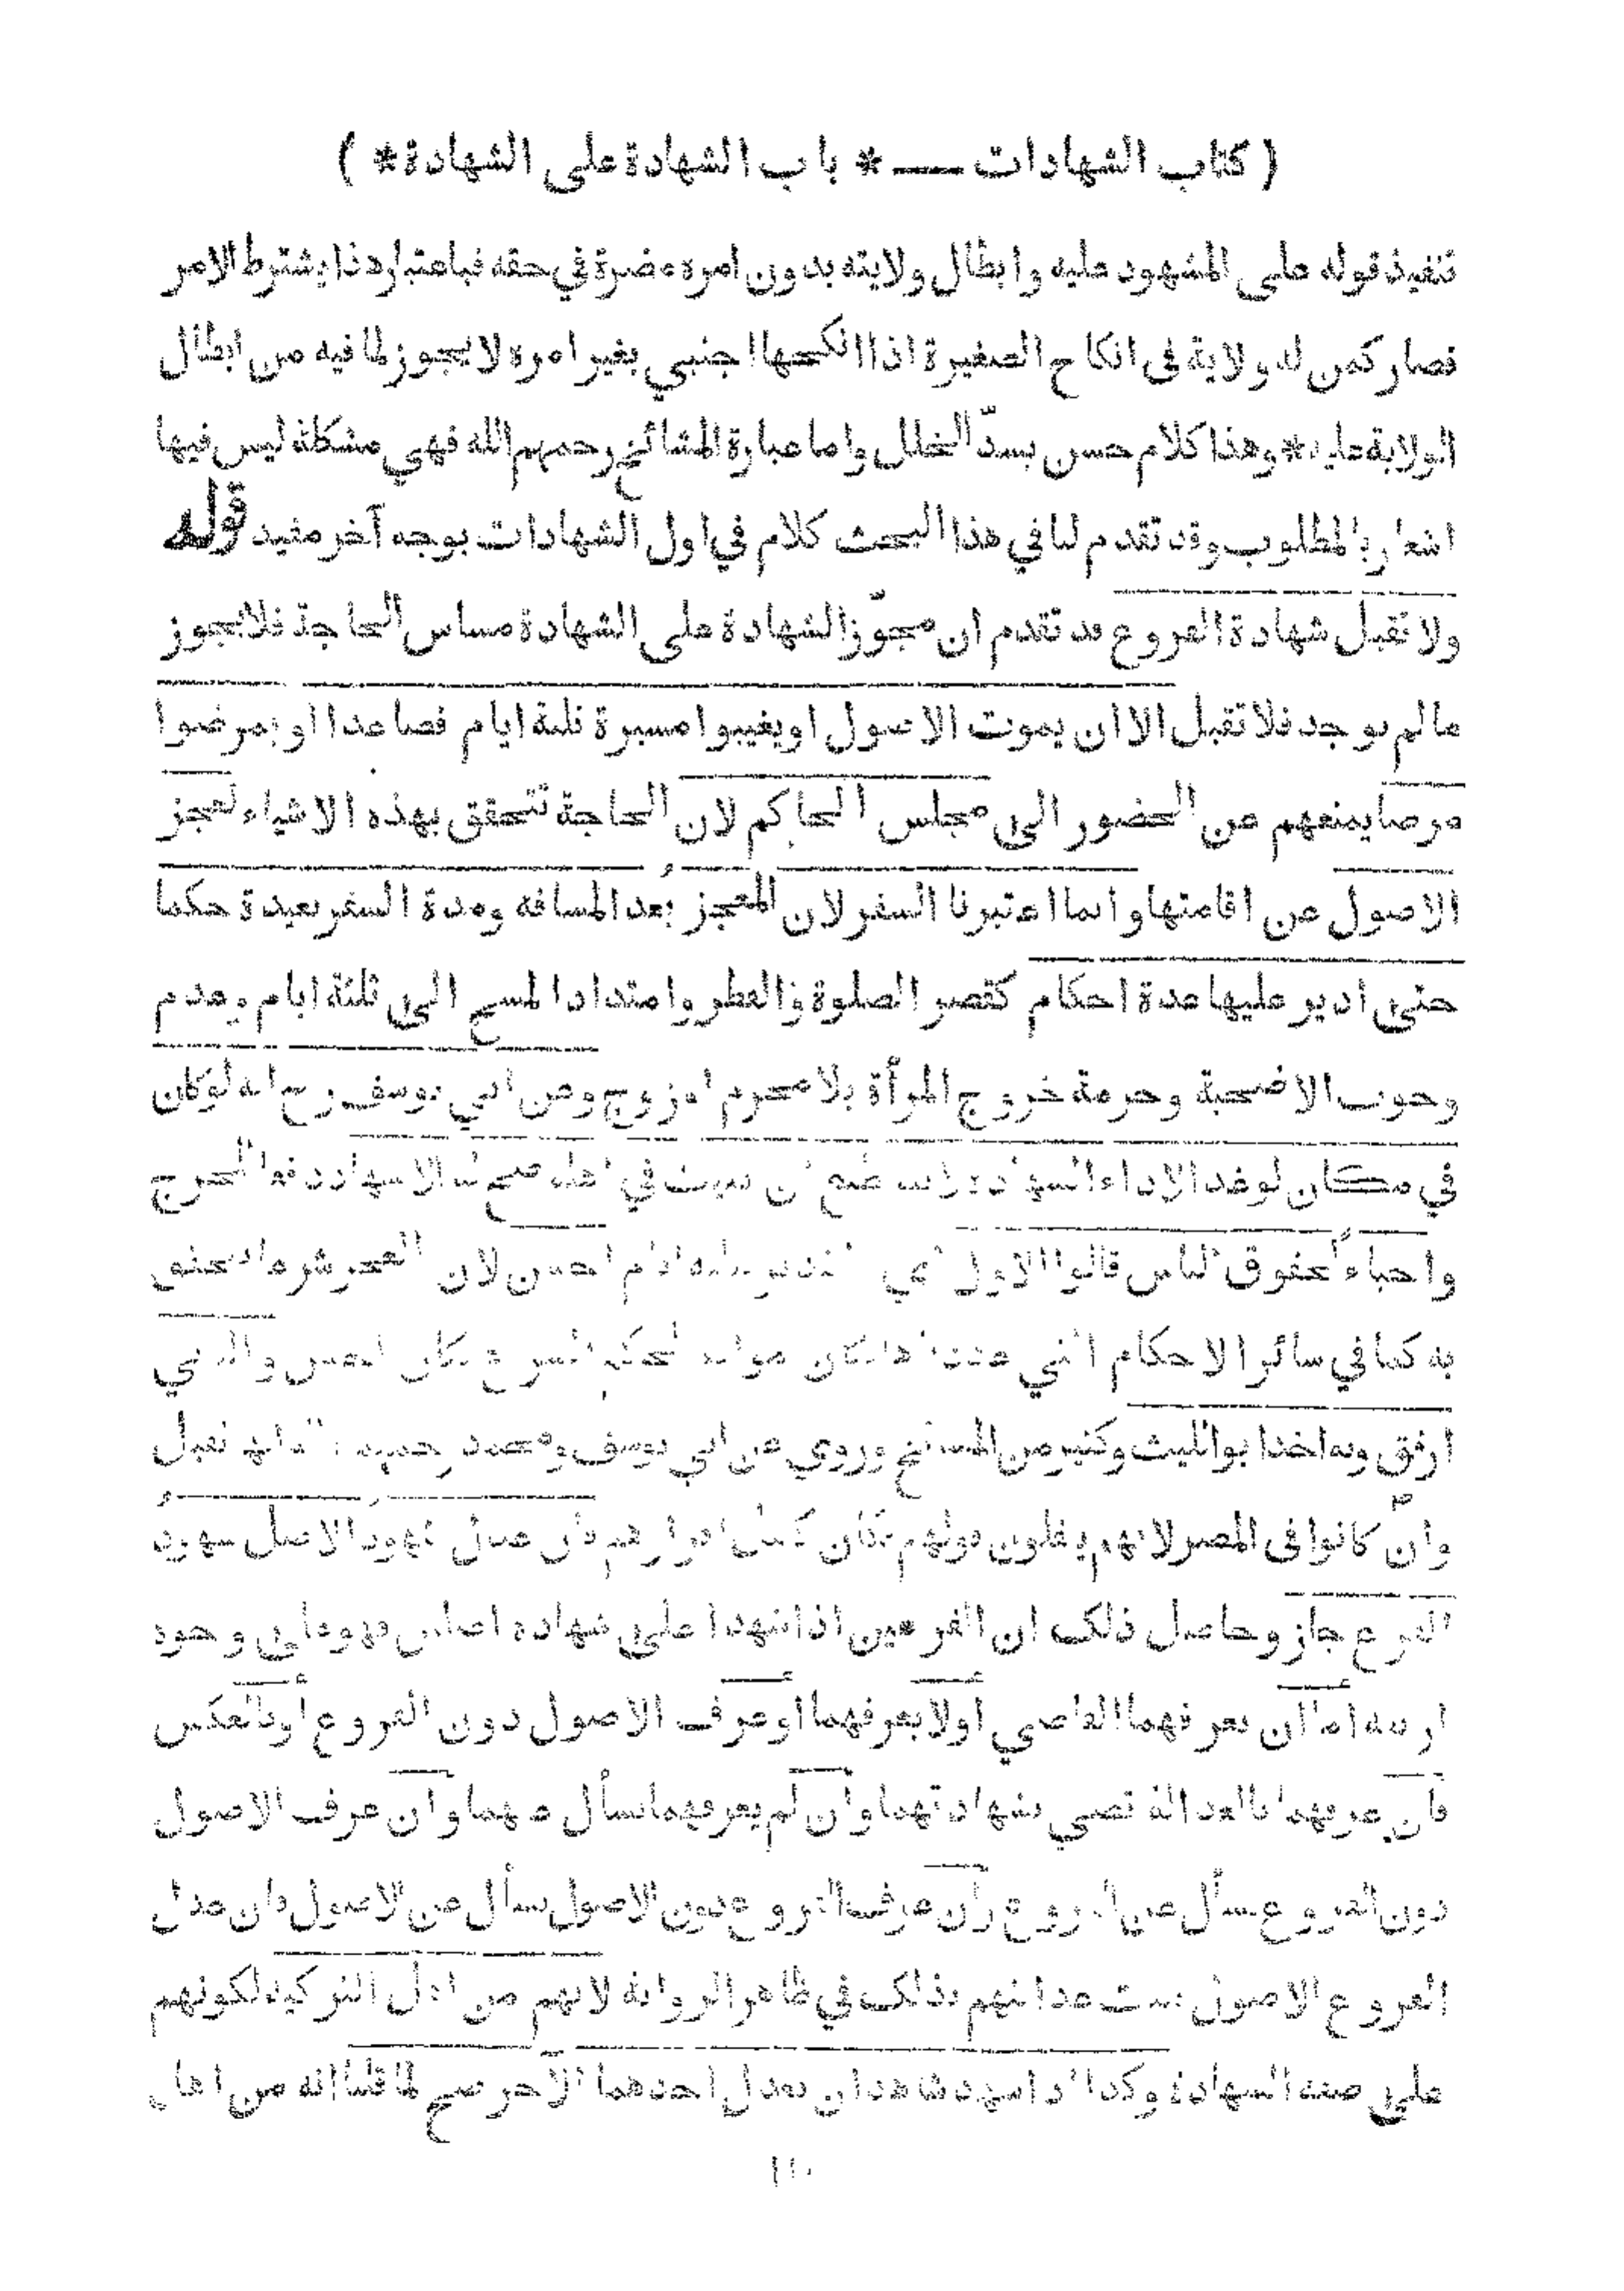 ( كتاب الشهادات —* باب الشهادة على الشهادة* )
تنفيذ قوله على المشهود عليه وابطال ولايته بدون امره مضرة في حقه فباعتبار هذا يشترط الامر
فصار كمن له ولاية فى انكاح الصغيرة اذا انكحها اجنبي بغير امره لا يجوز لما فيه من ابطال
الولاية عليه * وهذا كلام حسن يسدّ الخلل واما عبارة المشائخ رحمهم الله فهي مشكلة ليس فيها
اشعار بالمطلوب وقد تقدم لنا في هذا البحث كلام في اول الشهادات بوجه آخر مفيد قوله
ولا تقبل شهادة الفروع قد تقدم ان مجوّز الشهادة على الشهادة مساس الحاجة فلا يجوز
ما لم يوجد فلا تقبل الا ان يموت الاصول او يغيبوا مسيرة ثلثة ايام فصاعدا او يمرضوا
مرضا يمنعهم من الحضور الى مجلس الحاكم لان الحاجة تتحقق بهذه الاشياء لعجز
الاصول عن اقامتها وانما اعتبرنا السفر لان المعجز بعد المسافة ومدة السفر بعيدة حكما
حتى ادير عليها عدة احكام كقصر الصلوة والفطر وامتداد المسح الى ثلثة ايام وعدم
وجوب الاضحية وحرمة خروج المرأة بلا محرم او زوج وعن ابي يوسف رح انه لو كان
في مكان لو غدا لاداء الشهادة لا يستطيع ان يبيت في اهله صح له الاشهاد دفعا للحرج
واحياءً لحقوق الناس قالوا الاول احسن لان العجز شرعا يتحقق
به كما في سائر الاحكام التي عددناها فكان موافقا لحكم الشرع فكان احسن والثاني
ارفق وبه اخذ ابو الليث وكثير من المشائخ وروي عن ابي يوسف ومحمد رحمهما الله انها تقبل
وان كانوا فى المصر لانهم ينقلون قولهم فكان كنقل اقرارهم فان عدل شهود الاصل شهود
الفرع جاز وحاصل ذلك ان الفرعين اذا شهدا على شهادة اصلين فهو على وجوه
اربعة اما ان يعرفهما القاضي أو لا يعرفهما أو عرف الاصول دون الفروع أو بالعكس
فان عرفهما بالعدالة قضى بشهادتهما وان لم يعرفهما سأل عنهما وان عرف الاصول
دون الفروع سأل عن الفروع وان عرف الفروع دون الاصول سأل عن الاصول فان عدل
الفروع الاصول تثبت عدالتهم بذلك في ظاهر الرواية لانهم من اهل التزكية لكونهم
على صفة الشهادة وكذا اذا شهد شاهدان فعدل احدهما الآخر صح لما قلنا انه من اهل